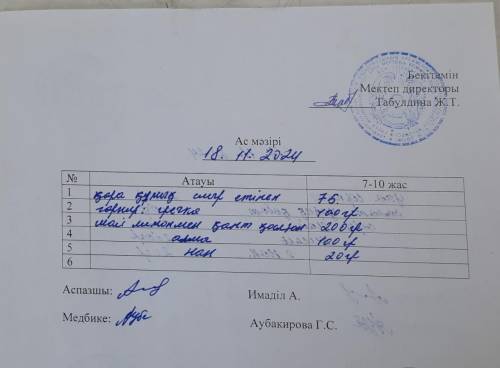 Бекітемін
Мектеп директоры
Табулдина Ж.Т.
Ас мәзірі
18. 11. 2024
№ Атауы 7-10 жас
1 қара құмық сиыр етінен 75
2 гарнир: гречка 100 гр
3 шай лимонмен қант қосылған 200 гр
4 алма 100 гр
5 нан 20 гр
6
Аспазшы: Имаділ А.
Медбике: Аубакирова Г.С.